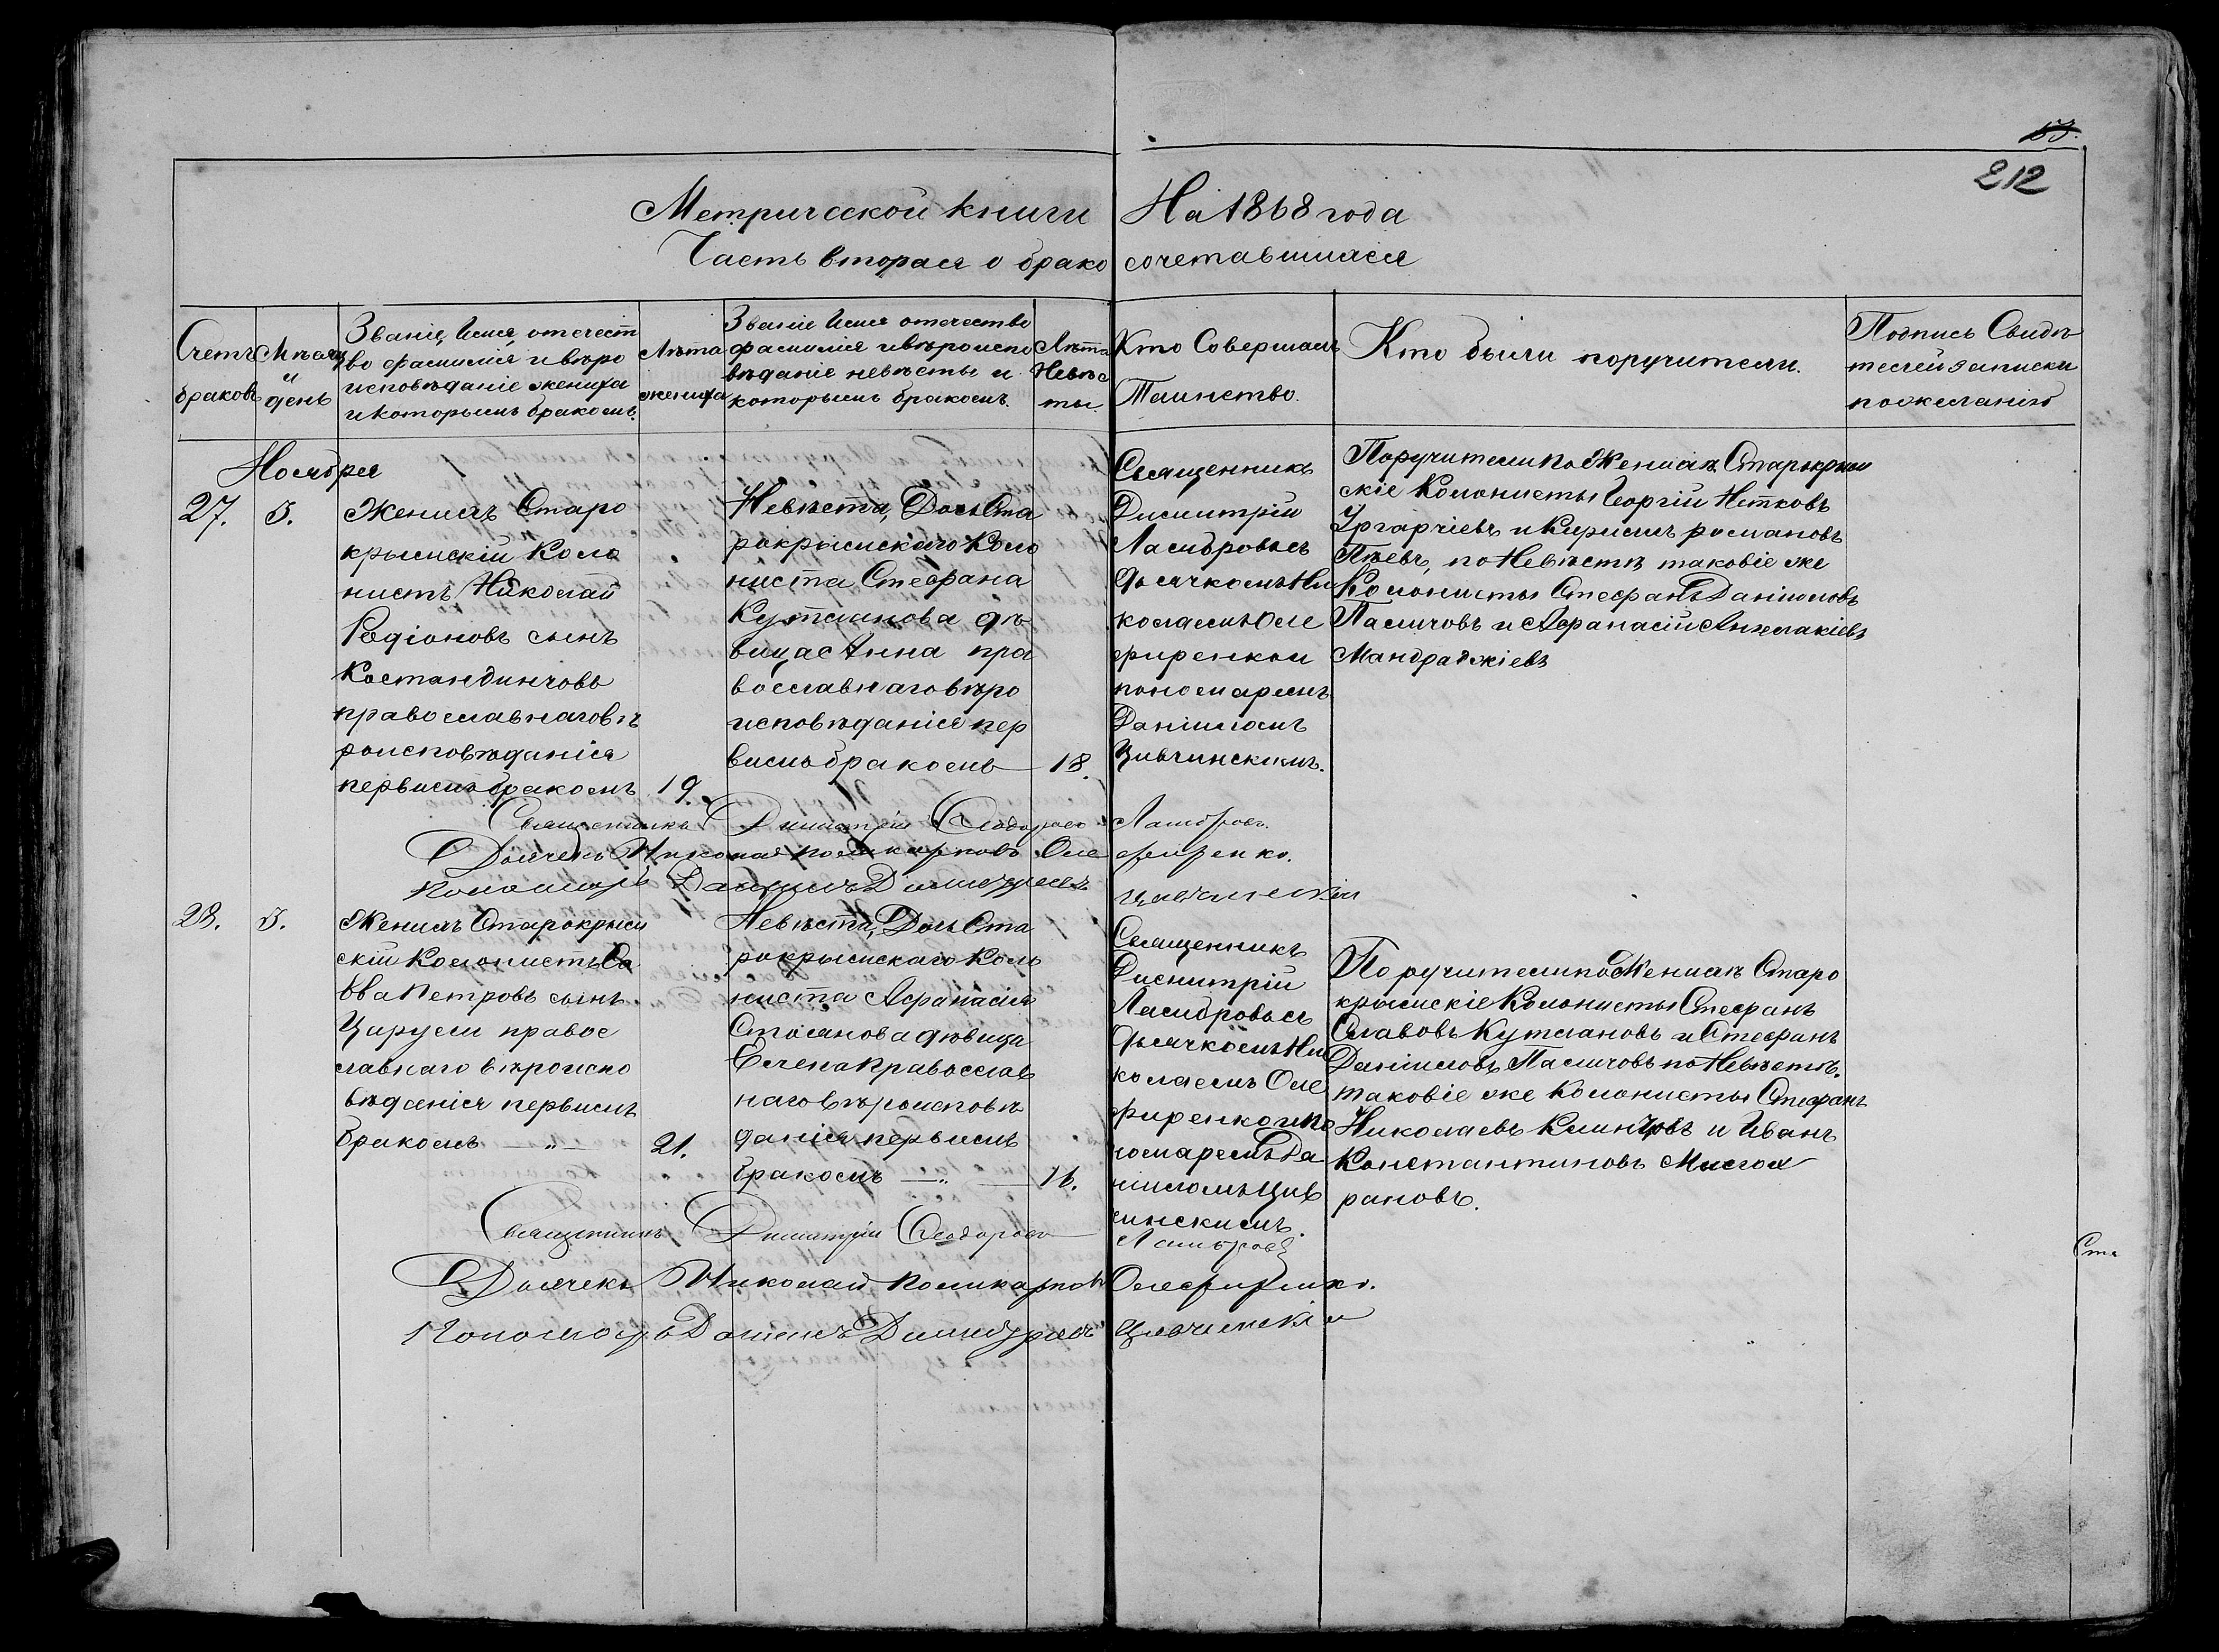 53.
212
Метрической книги На 1868 года
Часть вторая о брако сочетавшихся
Счетъ браковъ
Мѣсяцъ и день
Званіе, Имя, отечест
во фамилія и вѣро
исповѣданіе жениха
и которымъ бракомъ.
Лѣта жениха
Званіе Имя отечество
фамилія и вѣроиспо
вѣданіе невѣсты и
которымъ бракомъ.
Лѣта
Невѣс
ты.
Кто Совершалъ
Таинство.
Кто были поручители.
Подпись Свидѣ
телей записки
по желанію
Ноября
27. 5.
Женихъ Старо
крымскій Коло
нистъ Николай
Родіоновъ сынъ
Костандинчовъ
православнаго вѣ
роисповѣданія
первымъ бракомъ 19.
Невѣста, Дочь Ста
рокрымскаго Коло
ниста Стефана
Кутлянова дѣ
вица Анна пра
вославнаго вѣро
исповѣданія пер
вымъ бракомъ 18.
Священникъ
Димитрій
Ламбровъ съ
дьячкомъ Ни
колаемъ Оле
фиренком
пономаремъ
Даніиломъ
Цивчинскимъ.
Поручители по Женихѣ, Старокрым
скіе Колонисты Георгій Нетковъ
Ургарчіевъ и Кирилъ романовъ
Пѣевъ, по Невѣстѣ таковіе же
Колонисты Стефанъ Даниловъ
Паличовъ и Афанасій Анжлакіевъ
Мандраджіевъ
Священникъ Димитрій Феодоровъ Ламбровъ.
Дьячекъ Николай поликарповъ Оле фиренко.
Пономарь Даніилъ Димитріевъ Цивчинскій
28. 5.
Женихъ Старокрым
скій Колонистъ Са
вва Петровъ сынъ
Царули правос
лавнаго вѣроиспо
вѣданія первымъ
бракомъ — " — 21.
Невѣста, Дочь Ста
рокрымскаго Коло
ниста Афанасія
Стоянова дѣвица
Елена Православ
наго вѣроисповѣ
данія первымъ
бракомъ — " — 16.
Священникъ
Димитрій
Ламбровъ съ
дьячкомъ Ни
колаемъ Оле
фиренко и по
номаремъ Да
ніиломъ Цив
чинскимъ.
Поручители по Женихѣ Старо
крымскіе Колонисты Стефанъ
Славовъ Кутляновъ и Стефанъ
Даниловъ Паличовъ по Невѣстѣ.
таковіе же Колонисты Стефанъ
Николаевъ Клинчовъ и Иванъ
Константиновъ Мисло
рановъ.
Священникъ Димитрій Феодоровъ Ламбровъ
Дьячекъ Николай поликарповъ Олефиренко.
Пономарь Даніилъ Димитріевъ Цивчинскій
Ста